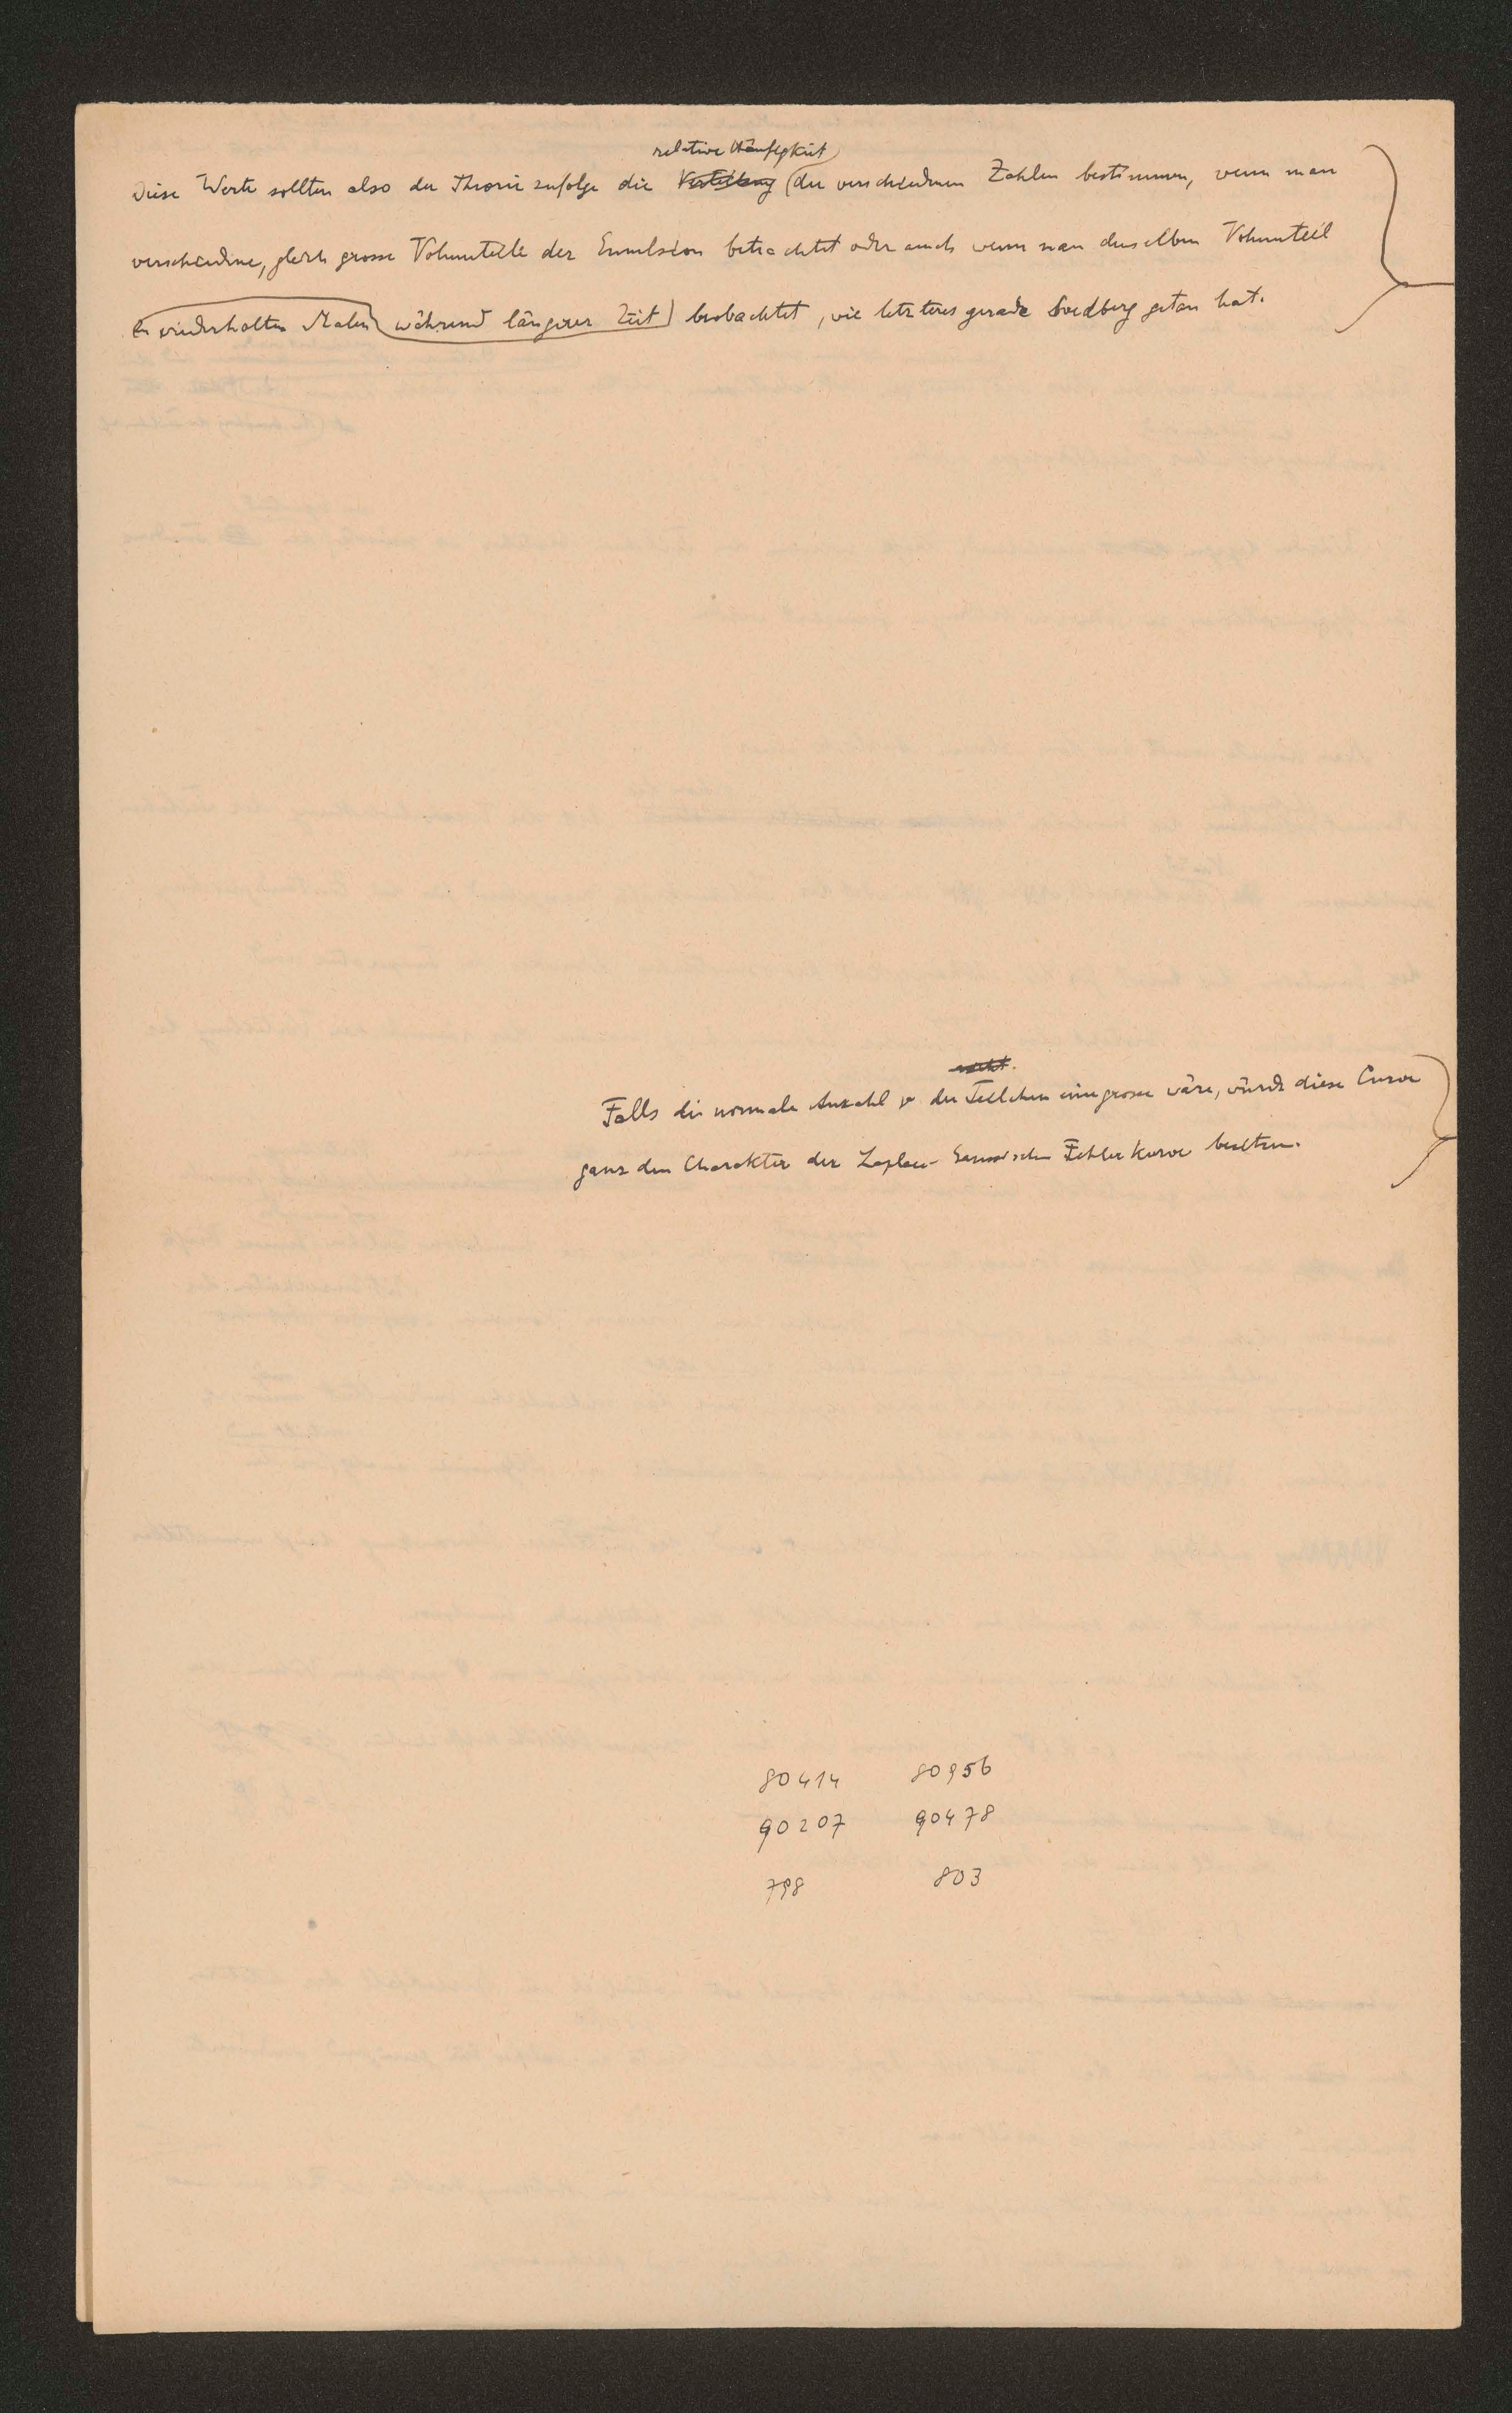 relative Häufigkeit
Diese Werte sollten also der Theorie zufolge die Verteilung der verschiednen Zahlen bestimmen, wenn man
verschiedne, gleich grosse Volumteile der Emulsion betrachtet oder auch wenn man denselben Volumteil
zu wiederholten Malen während längerer Zeit beobachtet, wie letzteres gerade Svedberg getan hat.
Falls die normale Anzahl ν der Teilchen eine grosse wäre, würde diese Curve
ganz den Charakter der Laplace-Gauss'schen Fehler Kurve besitzen.
80414 80956
90207 90478
798 803